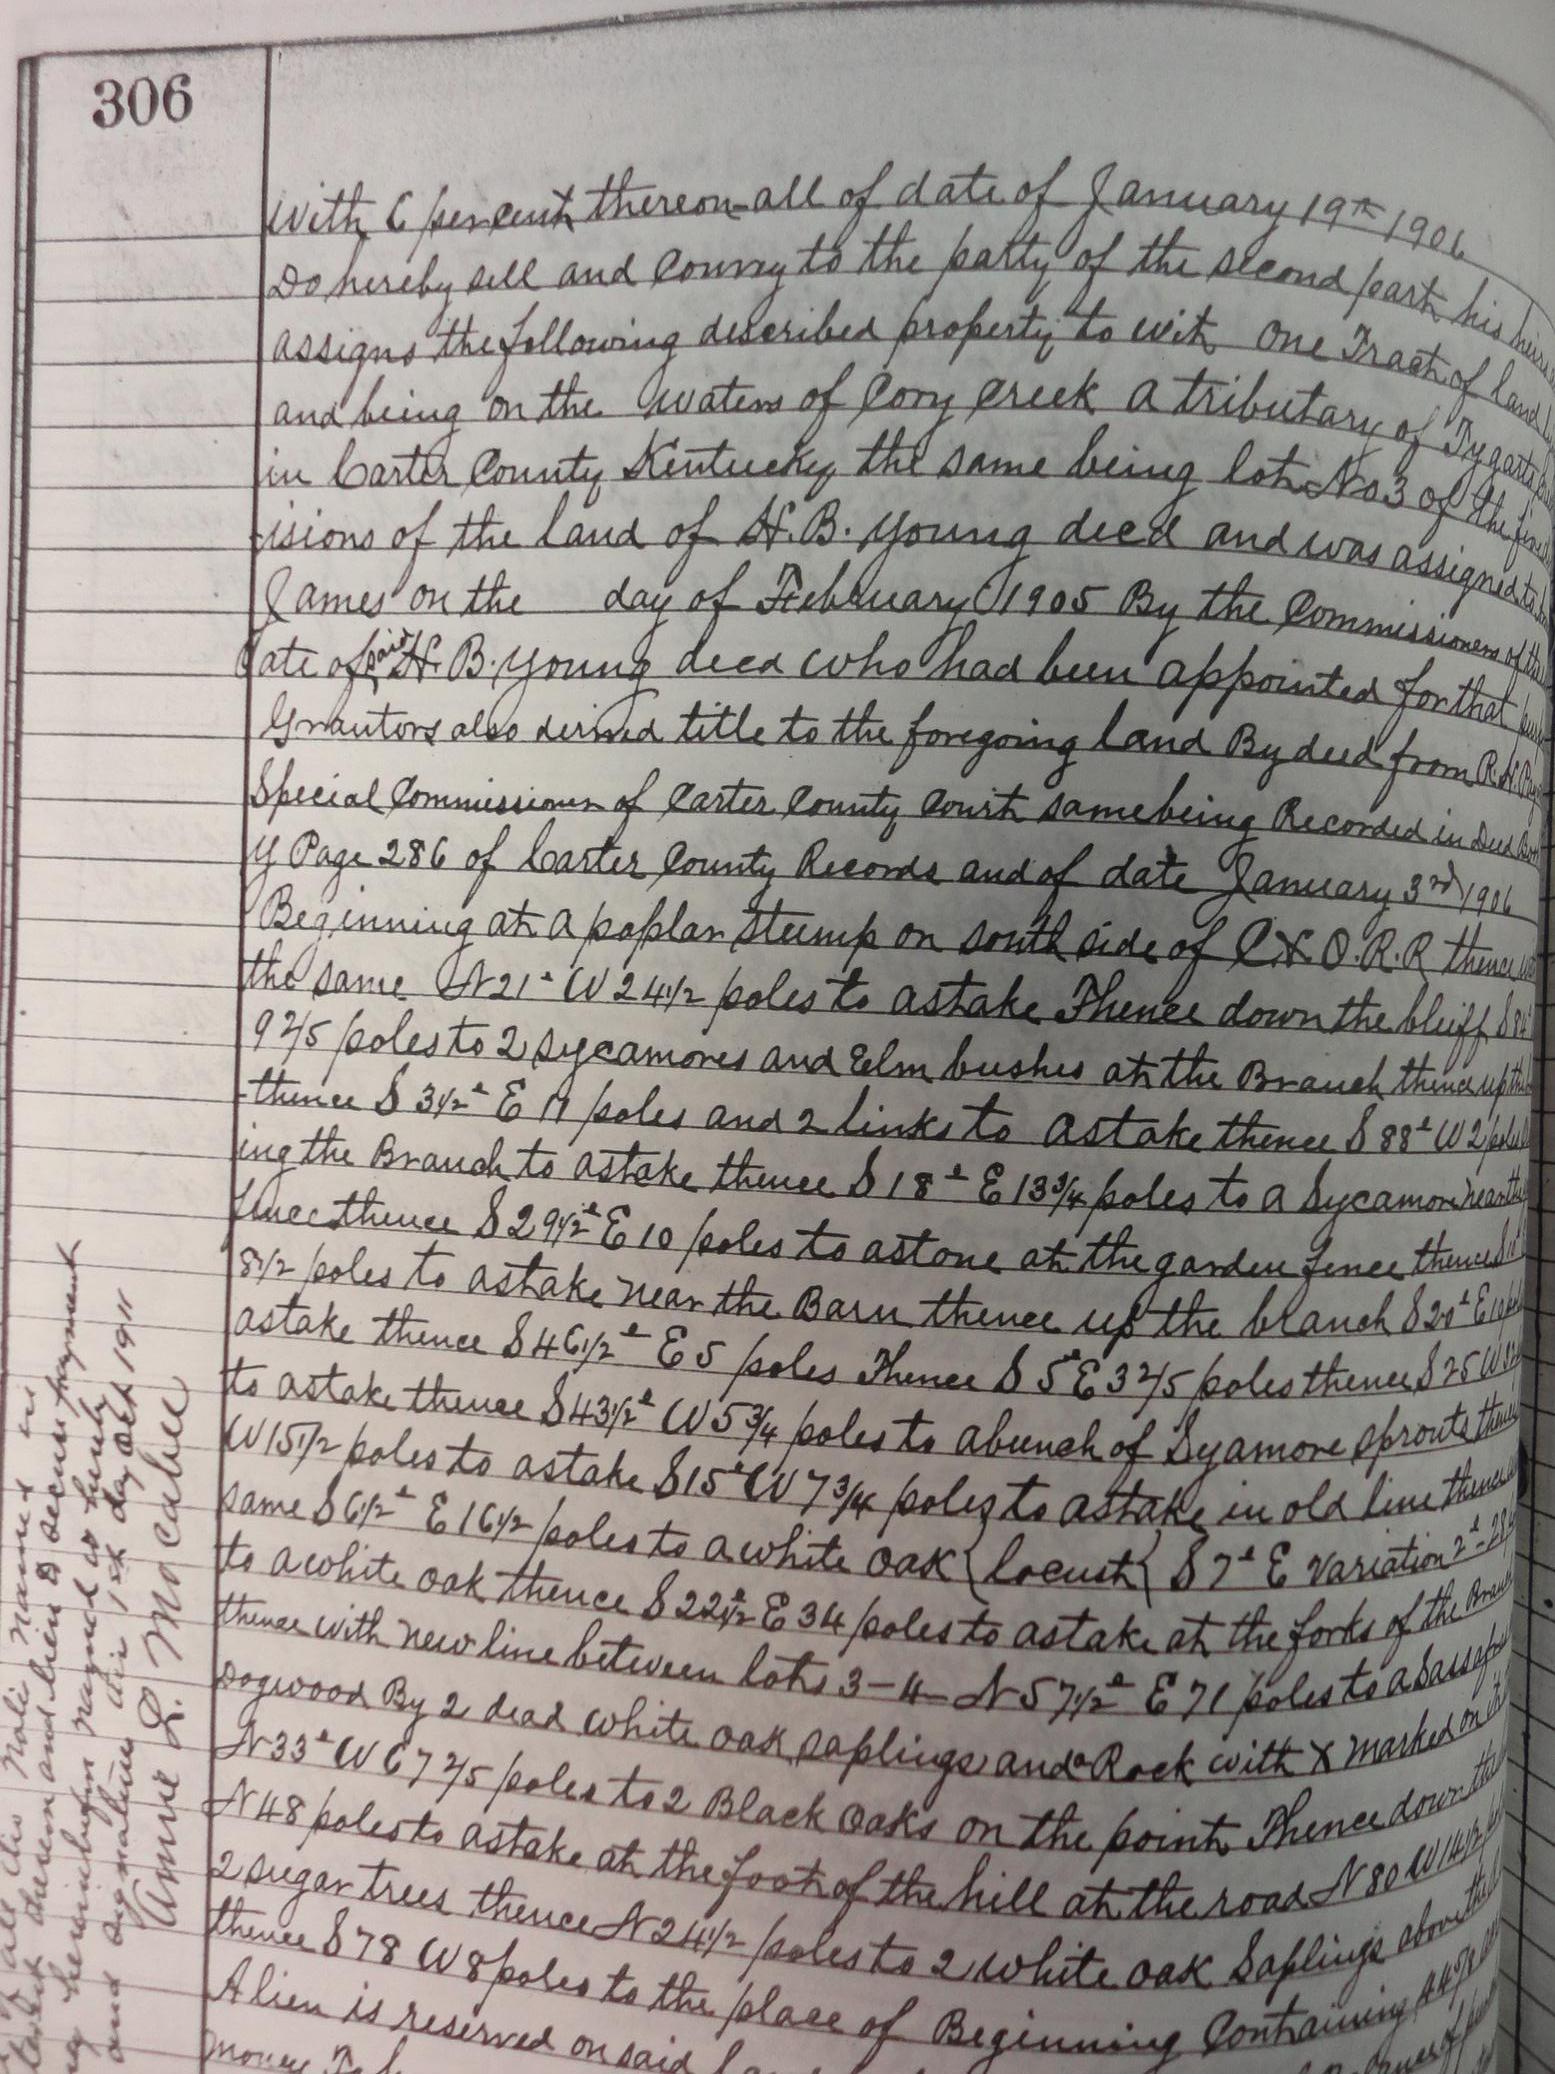 306
With 6 per cent thereon all of date of January 19th 1906
Do hereby sell and Convey to the party of the second part his heirs
assigns the following described property to wit One Tract of land
and being on the waters of Cory Creek A tributary of Tygarts
in Carter County Kentucky the same being lot No 3 of the
isions of the land of H.B. Young decd and was assigned to
James on the day of February 1905 By the Commissioners of the
tate of said H.B. Young decd who had been appointed for that
Grantors also derived title to the foregoing land By deed from R.H.
Special Commissioner of Carter County Court same being Recorded in Deed Book
Y Page 286 of Carter County Records and of date January 3rd 1906
Beginning at a poplar Stump on south side of C & O.R.R thence
the same N21° W 24 1/2 poles to astake Thence down the bluff S 84°
9 2/5 poles to 2 sycamores and Elm bushes at the Branch thence up the
thence S 3 1/2° E 11 poles and 2 links to astake thence S 88° W 2 poles
ing the Branch to astake thence S 18° E 13 3/4 poles to a Sycamore near the
fence thence S 29 1/2° E 10 poles to astone at the garden fence thence
8 1/2 poles to astake near the Barn thence up the branch S 20° E
astake thence S 46 1/2° E 5 poles Thence S 5° E 3 2/5 poles thence S 25 W
to astake thence S 43 1/2° W 5 3/4 poles to abunch of Syamore sprouts thence
W 15 1/2 poles to astake S 15° W 7 3/4 poles to astake in old line thence
same S 6 1/2° E 16 1/2 poles to a white oak { locust { S 7° E variation 2°
to a white oak thence S 22 1/2° E 34 poles to astake at the forks of the Branch
thence with new line between lots 3-4 N 57 1/2° E 71 poles to a Sassafras
Dogwood By 2 dead white oak saplings and a Rock with X marked on it
N33° W 67 2/5 poles to 2 Black Oaks on the point Thence down the
N 48 poles to astake at the foot of the hill at the road N 80 W 14 1/2
2 sugar trees thence N 24 1/2 poles to 2 white oak Saplings above the
thence S 78 W 8 poles to the place of Beginning Containing
A lien is reserved on said
money
all this note named in
therein and lien to secure payment
hereinbefore named is hereby
and signature this 1st day Oct 1911
L. McCabee